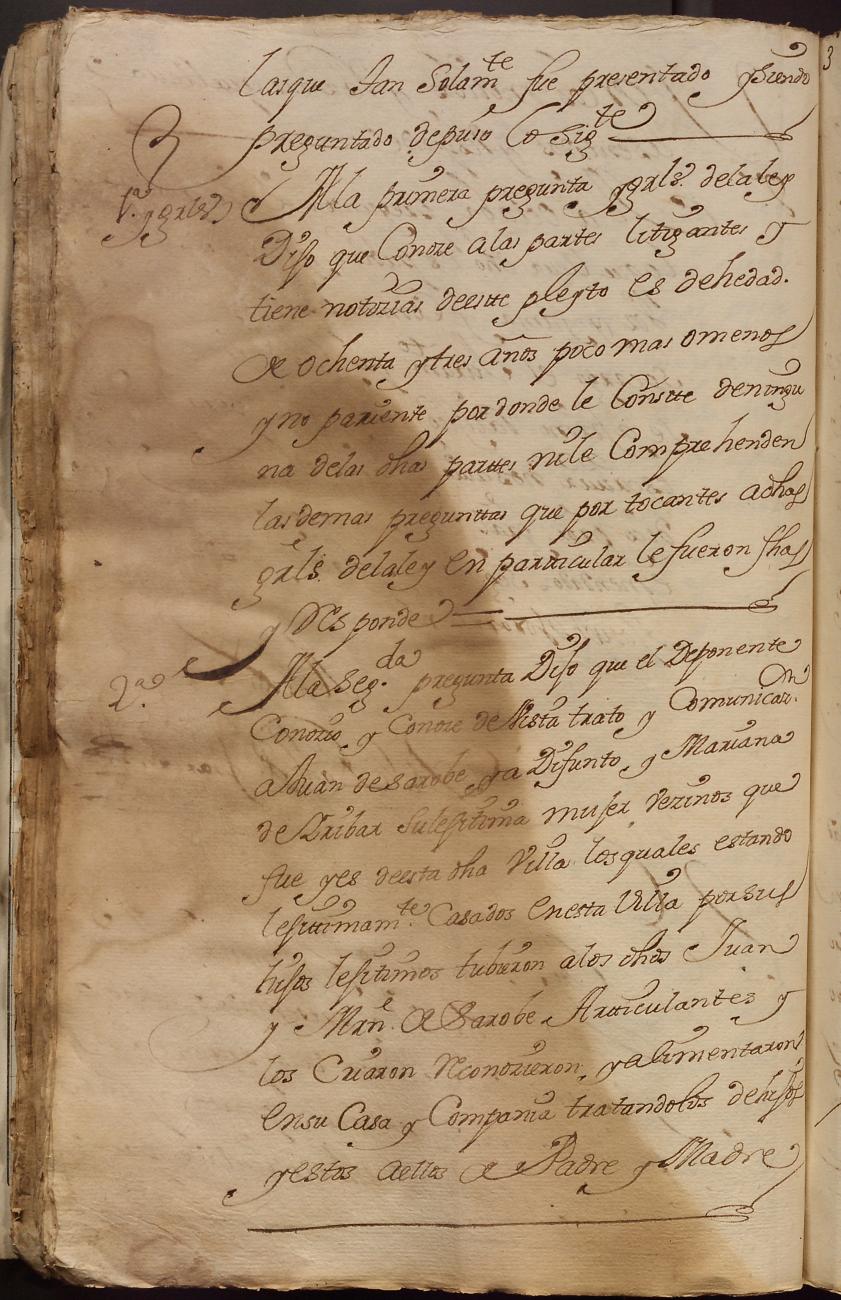 lasque tan Solamte fue presentado ysiendo
preguntado depuso lo Sigte
1ª y grls A la primera pregunta ygrls. delaley
Dijo que Conoze alas partes litigantes y
tiene notizias deeste pleyto es dehedad.
de ochenta ytres años poco mas omenos
yno pariente pordonde le Conste deningu
na delas dhas partes nile Comprehenden
lasdemas preguntas que por tocantes adhas
grls. delaley en particular lefueron fhas
y Responde
2ª A la Seg.da pregunta Dijo que el Deponente
Conozio y Conoze deVista trato y Comunicaz.on
aJuan desarobe ya Difunto y Mariana
de Aribar Sulejitima mujer Vezinos que
fue yes deesta dha Villa losquales estando
lejitimamte. Casados enesta Villa porsus
hijos lejitimos tubieron alos dhos Juan
y Mrn de Sarobe Articulantes y
los Criaron Reconozieron yalimentaron
ensu Casa y Compania tratandolos dehijos
yestos aellos de Padre y Madre